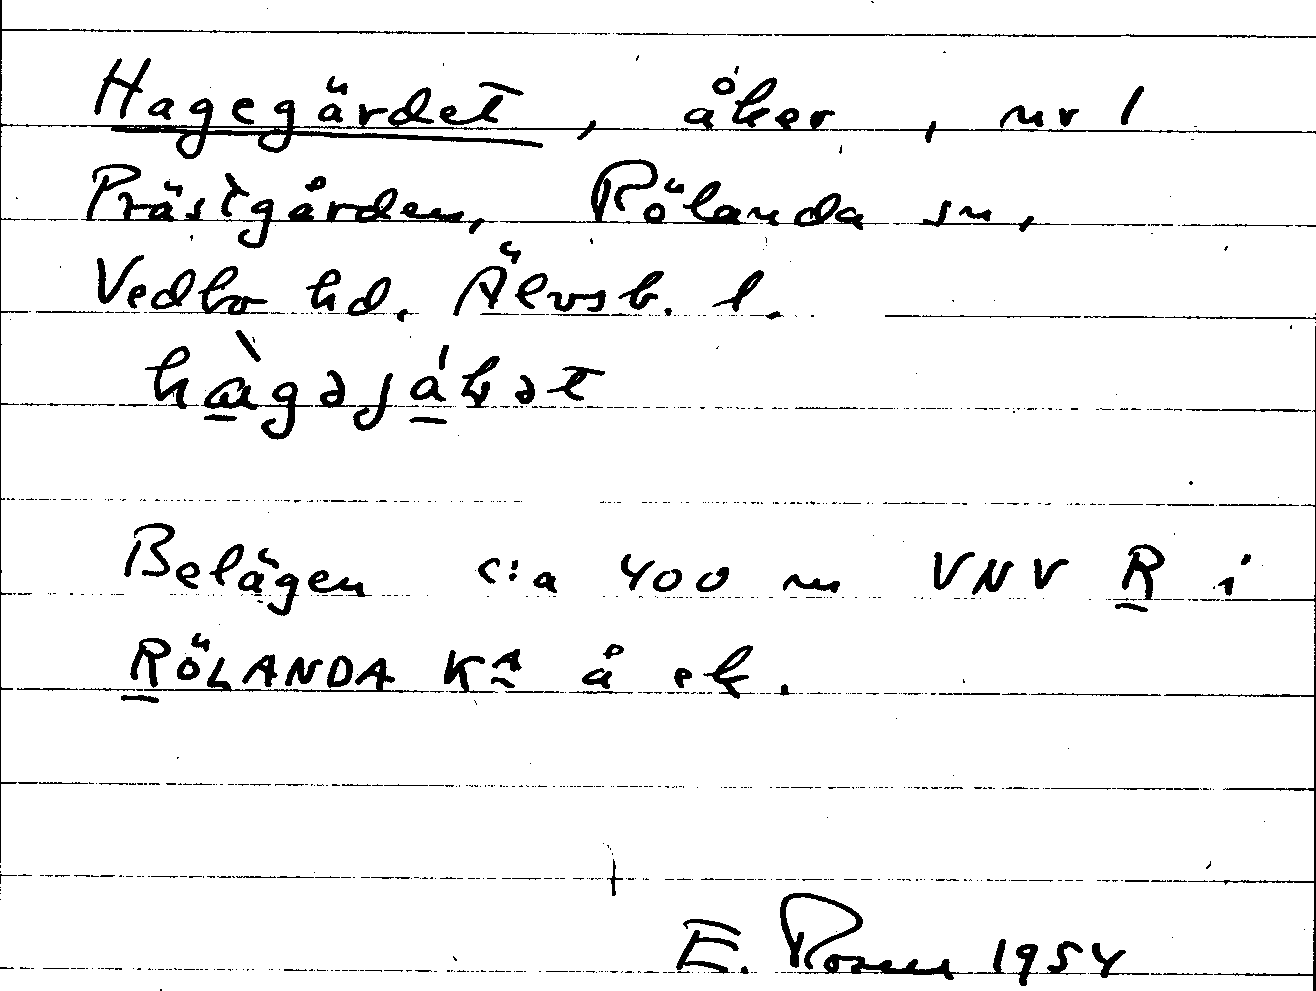 Hagegärdet, åker, nr 1
Prästgården, Rölanda sn,
Vedbo hd. Älvsb. l.
Belägen c:a 400 m VNV R i
RÖLANDA KA å ek.
E. Rosen 1954